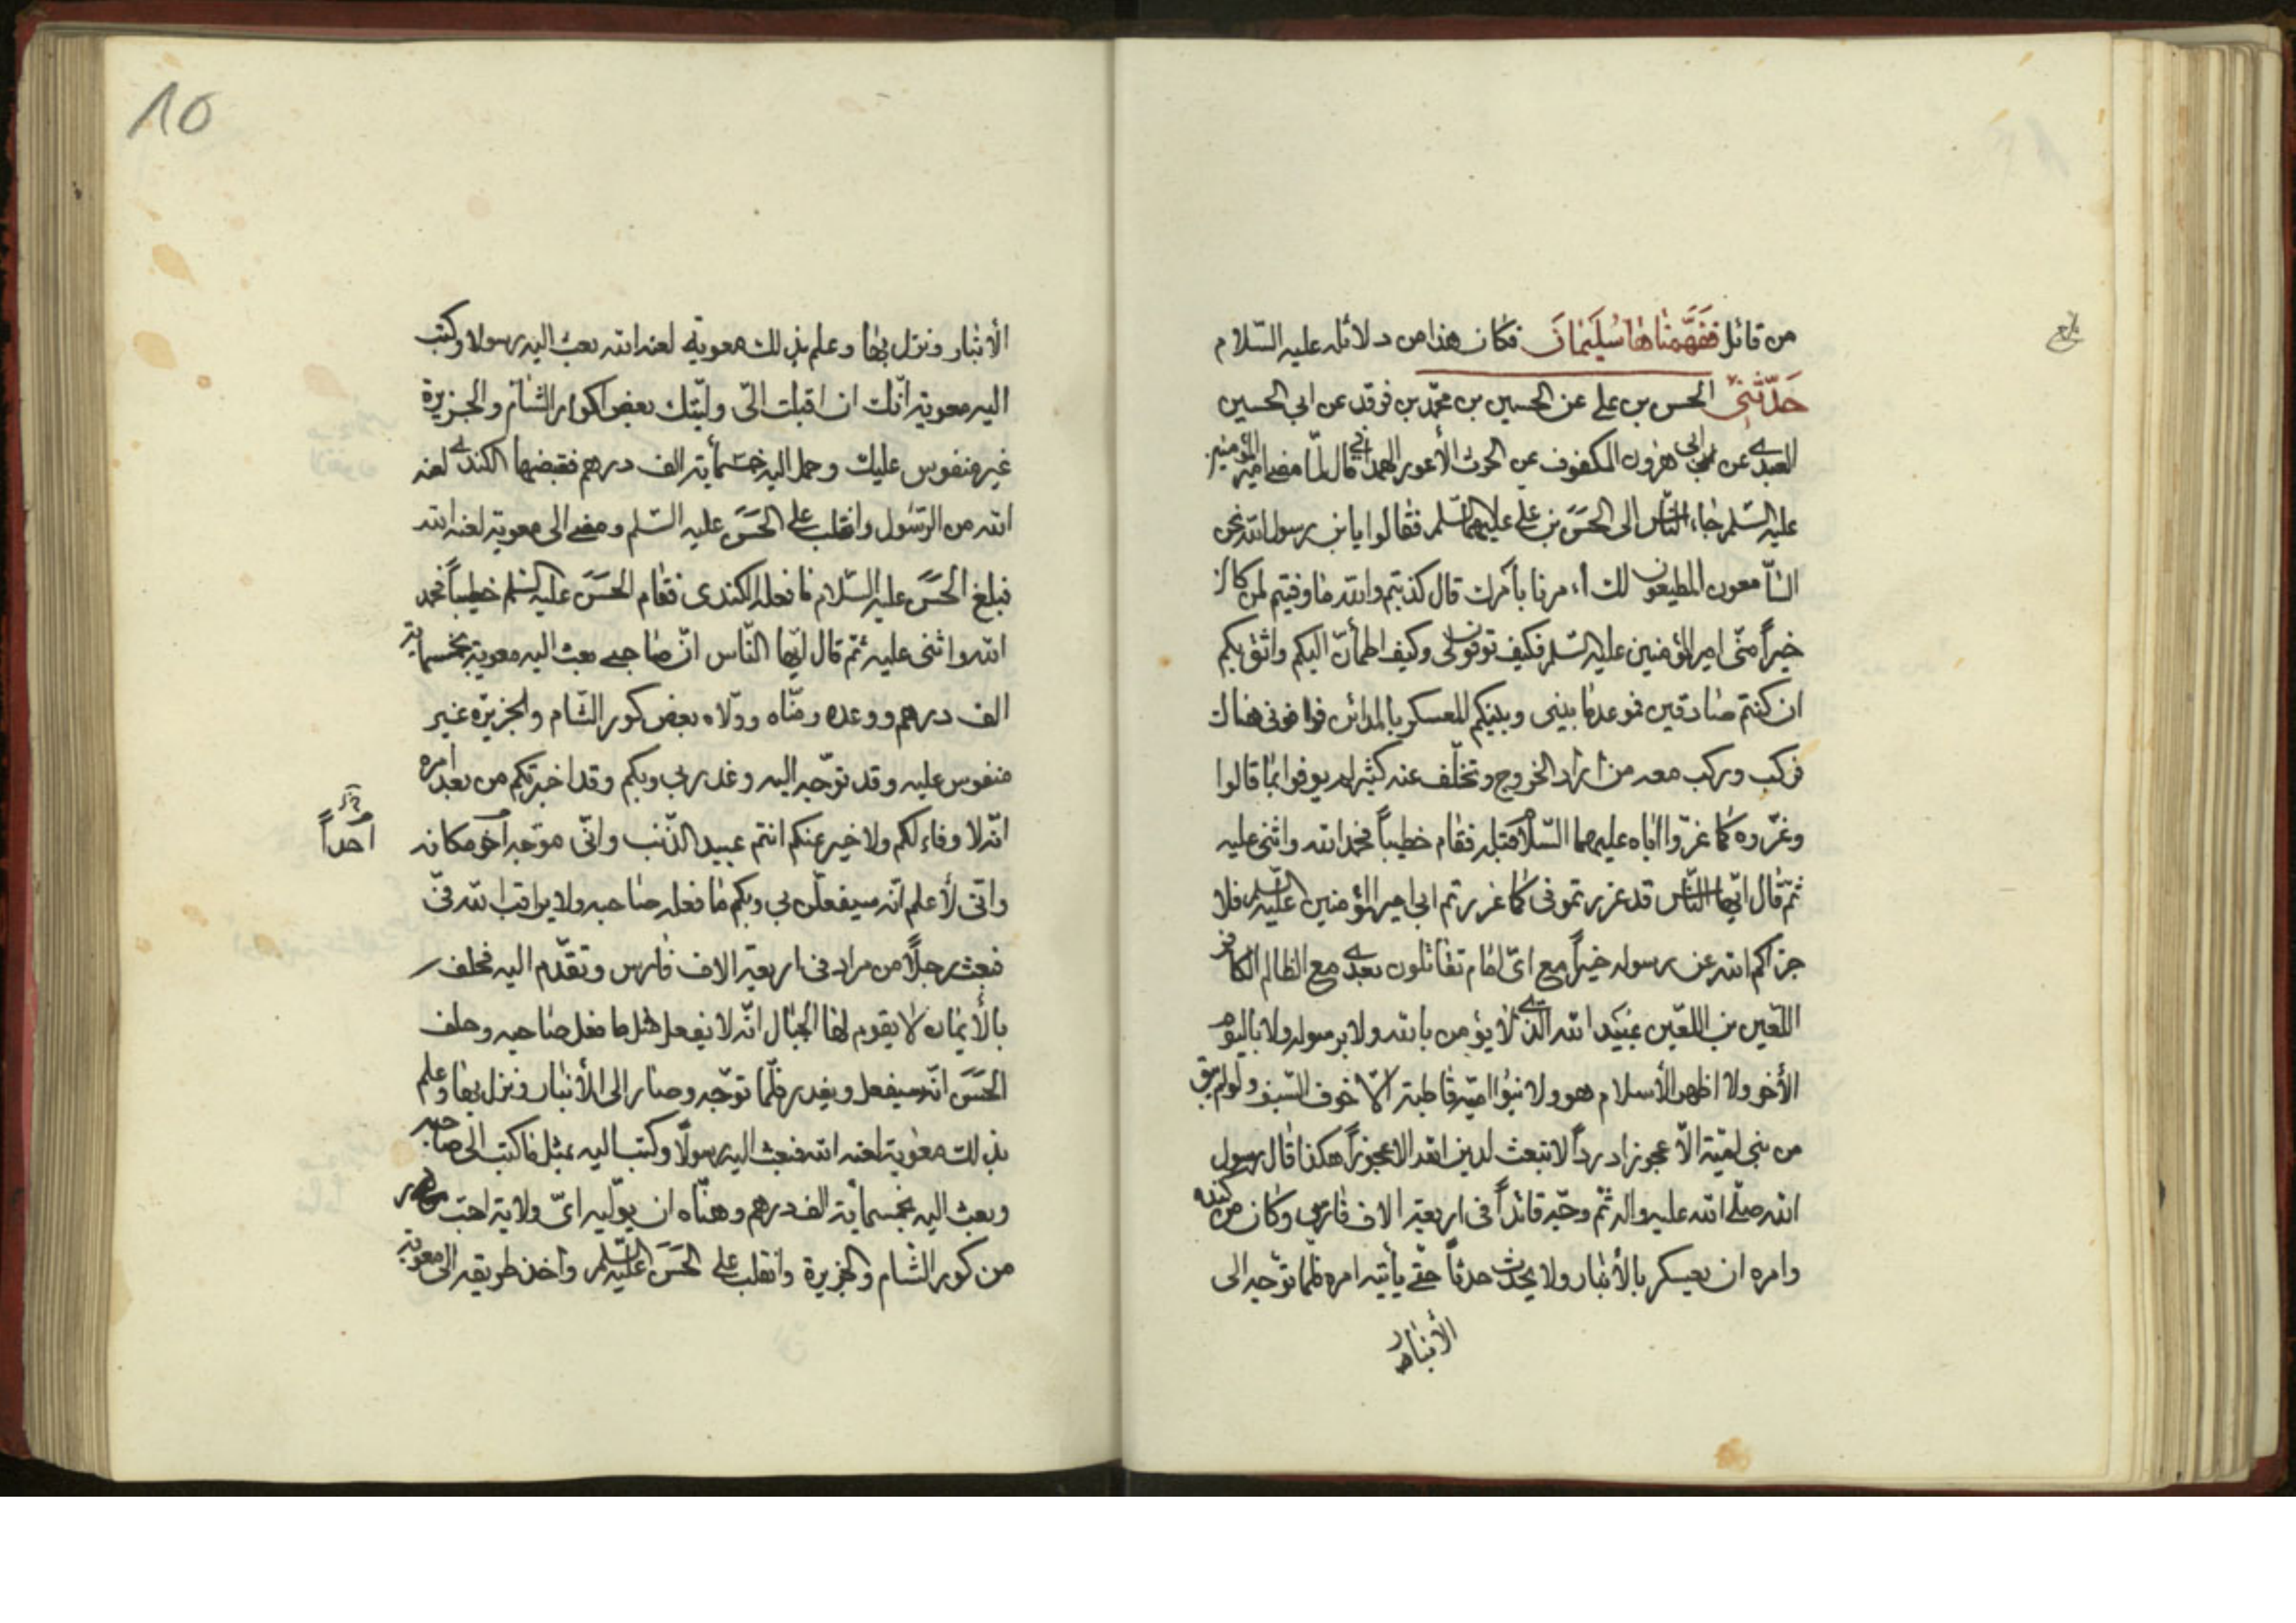 من قائل ففهمناها سليمان فكان هذا من دلائله عليه السّلام
حدّثني الحسن بن علي عن الحسين بن محمّد بن فرقد عن ابي الحسين
العبدي عن ابي هرون المكفوف عن الحرث الأعور الهمداني قال لمّا مضى امير المؤمنين
عليه السّلم جاء النّاس الى الحسن بن علي عليهما السّلم فقالوا يا بن رسول الله نحن
السّامعون المطيعون لك مرنا بأمرك قال كذبتم والله ما وفيتم لمن كان
خيراً منّي امير المؤمنين عليه السّلم فكيف توفون لي وكيف اطمأنّ اليكم واثق بكم
ان كنتم صادقين فموعد ما بيني وبينكم للعسكر بالمدائن فوافوني هناك
فركب وركب معه من اراد الخروج وتخلّف عنه كثير لم يوفوا بما قالوا
وغرّوه كما غرّوا اباه عليهما السّلام قبله فقام خطيباً فحمد الله واثنى عليه
ثمّ قال ايّها النّاس قد غررتموني كما غررتم ابي امير المؤمنين عليه السّلم فلا
جزاكم الله عن رسوله خيراً مع ايّ امام تقاتلون بعدي مع الظالم الكافر
اللّعين بن اللعّين عبيد الله الّذي لا يؤمن بالله ولا برسوله ولا باليوم
الأخر ولا اظهر الأسلام هو ولا بنوا اميّة قاطبة الّا خوف السّيف ولو لم يبق
من بني اميّة الّا عجوز درداً لا تبعث لدين الله الا عجوزاً هكذا قال رسول
الله صلّى الله عليه واله ثمّ وجّه قائداً في اربعة الاف فارس وكان من كندة
وامره ان يعسكر بالأنبار ولا يحدث حدثاً حتّى يأتيه امره فلمّا توجّه الى
الأنبار
10
الأنبار ونزل بها وعلم بذلك معوية لعنه الله بعث اليه رسولا وكتب
اليه معوية انّك ان اقبلت اليّ ولّيتك بعض اكوار الشام والجزيرة
غير منفوس عليك وحمل اليه خمسمأية الف درهم فقبضها الكندي لعنه
الله من الرّسول وانقلب على الحسن عليه السّلم ومضى الى معوية لعنه الله
فبلغ الحسن عليه السّلام ما فعله الكندى فقام الحسن عليه السّلم خطيباً فحمد
الله واثنى عليه ثمّ قال ايّها النّاس انّ صاحبي بعث اليه معوية بخمسماية
الف درهم ووعده ومنّاه وولّاه بعض كور الشّام والجزيرة غير
منفوس عليه وقد توجّه اليه وغدر بي وبكم وقد اخبرتكم من بعد امره
انّه لا وفاء لكم ولا خير عنكم انتم عبيد الدّنب وانّي موجّه آخر مكانه
احداً
وانّي لأعلم انّه سيفعلّن بي وبكم ما فعله صاحبه ولا يراقب الله فيّ
فبعث رجلًا من مراد في اربعة الاف فارس وتقدّم اليه فحلف
بالأيمان لا يقوم لها الجبال انّه لا يفعل مثل ما فعل صاحبه وحلف
الحسن انّه سيفعل ويغدر فلّما توجّه وصار الى الأنبار ونزل بها وعلم
بذلك معوية لعنه الله فبعث اليه رسولًا وكتب اليه بمثل ما كتب الى صاحبه
وبعث اليه بخمسمأية الف درهم ومنّاه ان يولّيه ايّ ولاية احبّ
من كور الشّام والجزيرة وانقلب على الحسن عليه السّلم واخذ طريقه الى معوية